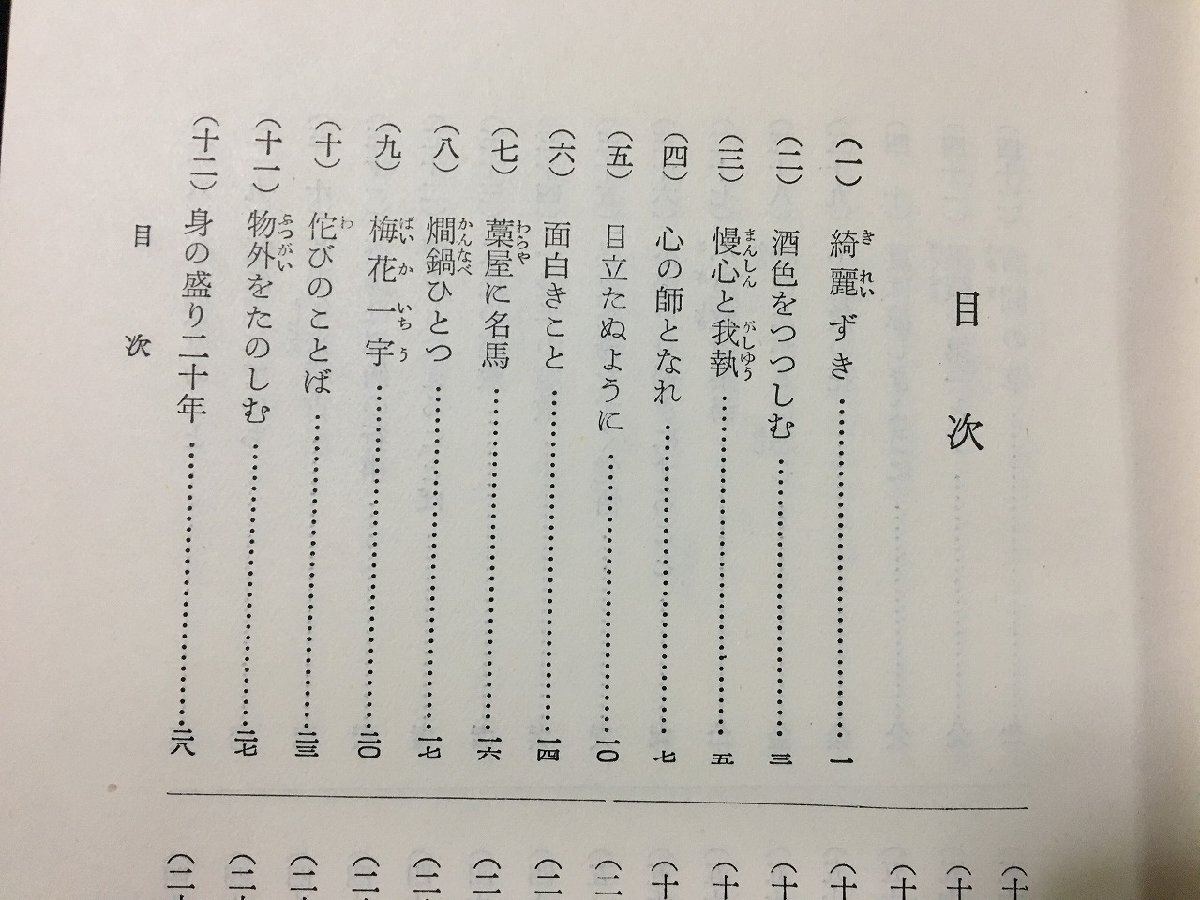 目次
(一) 綺麗ずき……一
(二) 酒色をつつしむ……三
(三) 慢心と我執……五
(四) 心の師となれ……七
(五) 目立たぬように……一〇
(六) 面白きこと……一四
(七) 藁屋に名馬……一六
(八) 燗鍋ひとつ……一七
(九) 梅花一宇……二〇
(十) 侘びのことば……二三
(十一) 物外をたのしむ……二七
(十二) 身の盛り二十年……二八
目次